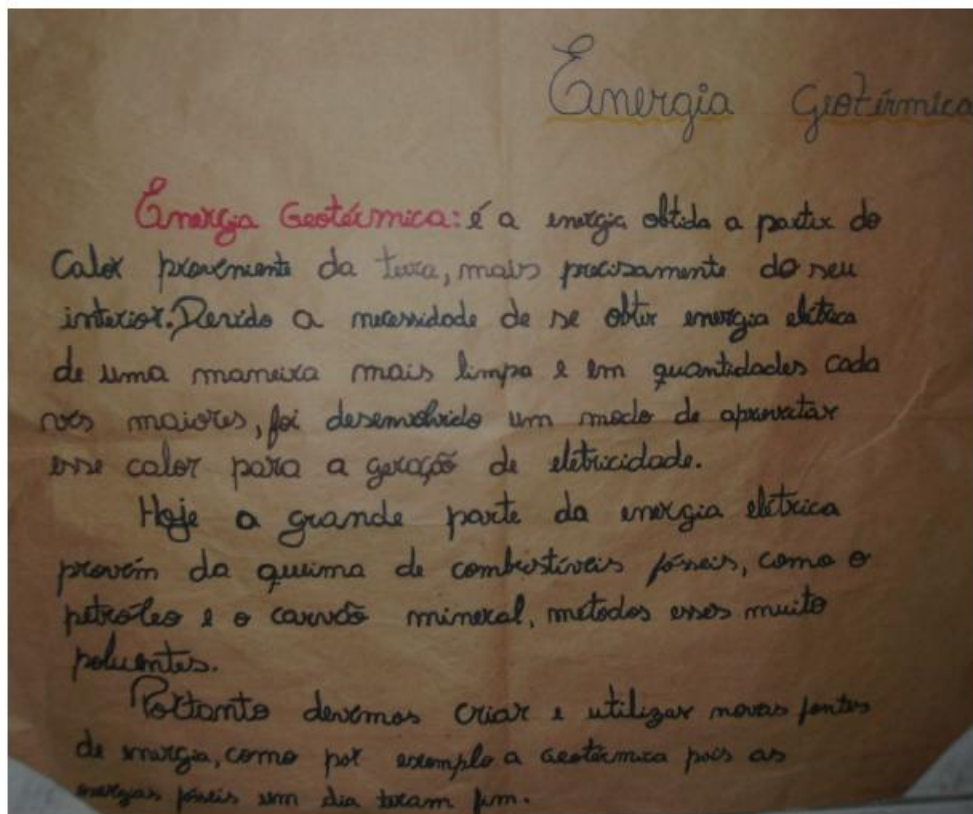 Energia Geotérmica
Energia Geotérmica: é a energia obtida a partir do
Calor proveniente da terra, mais precisamente do seu
interior. Devido a necessidade de se obter energia elétrica
de uma maneira mais limpa e em quantidades cada
vês maiores, foi desenvolvido um modo de aproveitar
esse calor para a geração de eletricidade.
Hoje a grande parte da energia elétrica
provém da queima de combustíveis fósseis, como o
petróleo e o carvão mineral, metodos esses muito
poluentes.
Portanto devemos criar e utilizar novas fontes
de energia, como por exemplo a Geotérmica pois as
energias fósseis um dia teram fim.